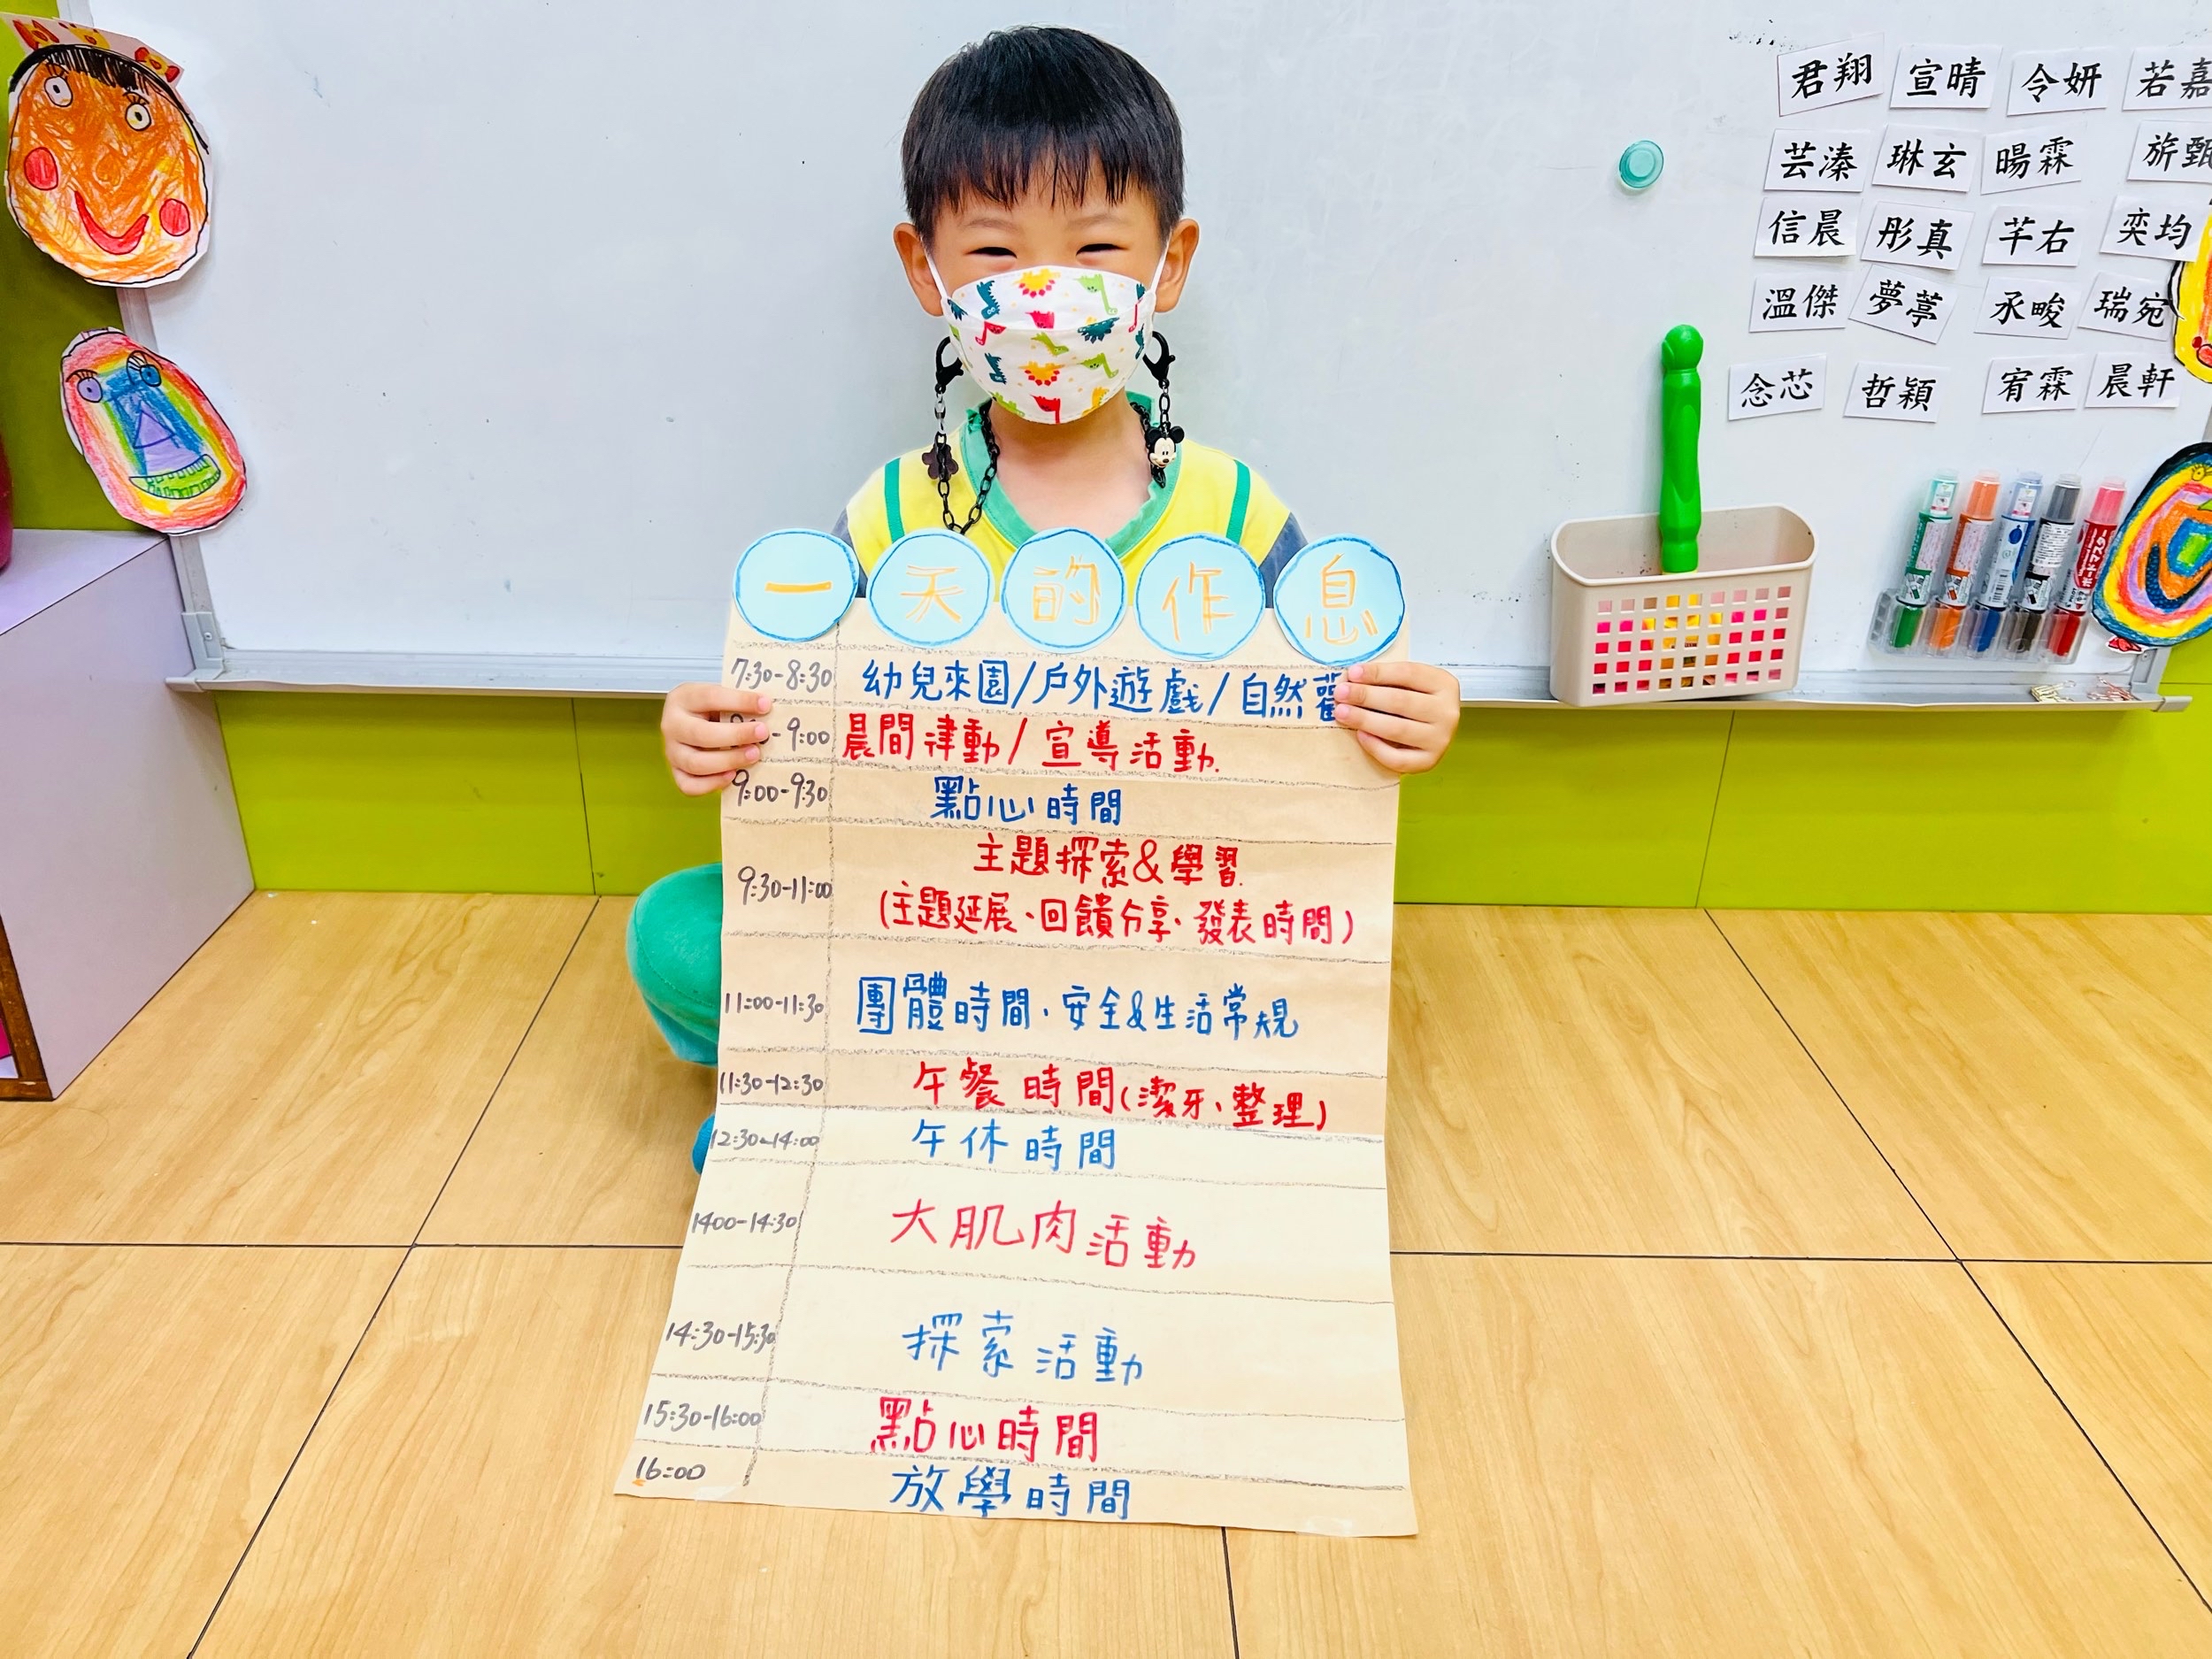 一天的作息
7:30-8:30 幼兒來園/戶外遊戲/自然
-9:00 晨間律動/宣導活動.
9:00-9:30 點心時間
9:30-11:00 主題探索&學習.
(主題延展、回饋分享、發表時間)
11:00-11:30 團體時間、安全&生活常規
11:30-12:30 午餐時間(潔牙、整理)
12:30-14:00 午休時間
1400-14:30 大肌肉活動
14:30-15:30 探索活動
15:30-16:00 點心時間
16:00 放學時間
君翔 宣晴 令妍 若嘉
芸溱 琳玄 暘霖 旂甄
信晨 彤真 芊右 奕均
溫傑 夢葶 承畯 瑞宛
念芯 哲穎 宥霖 晨軒